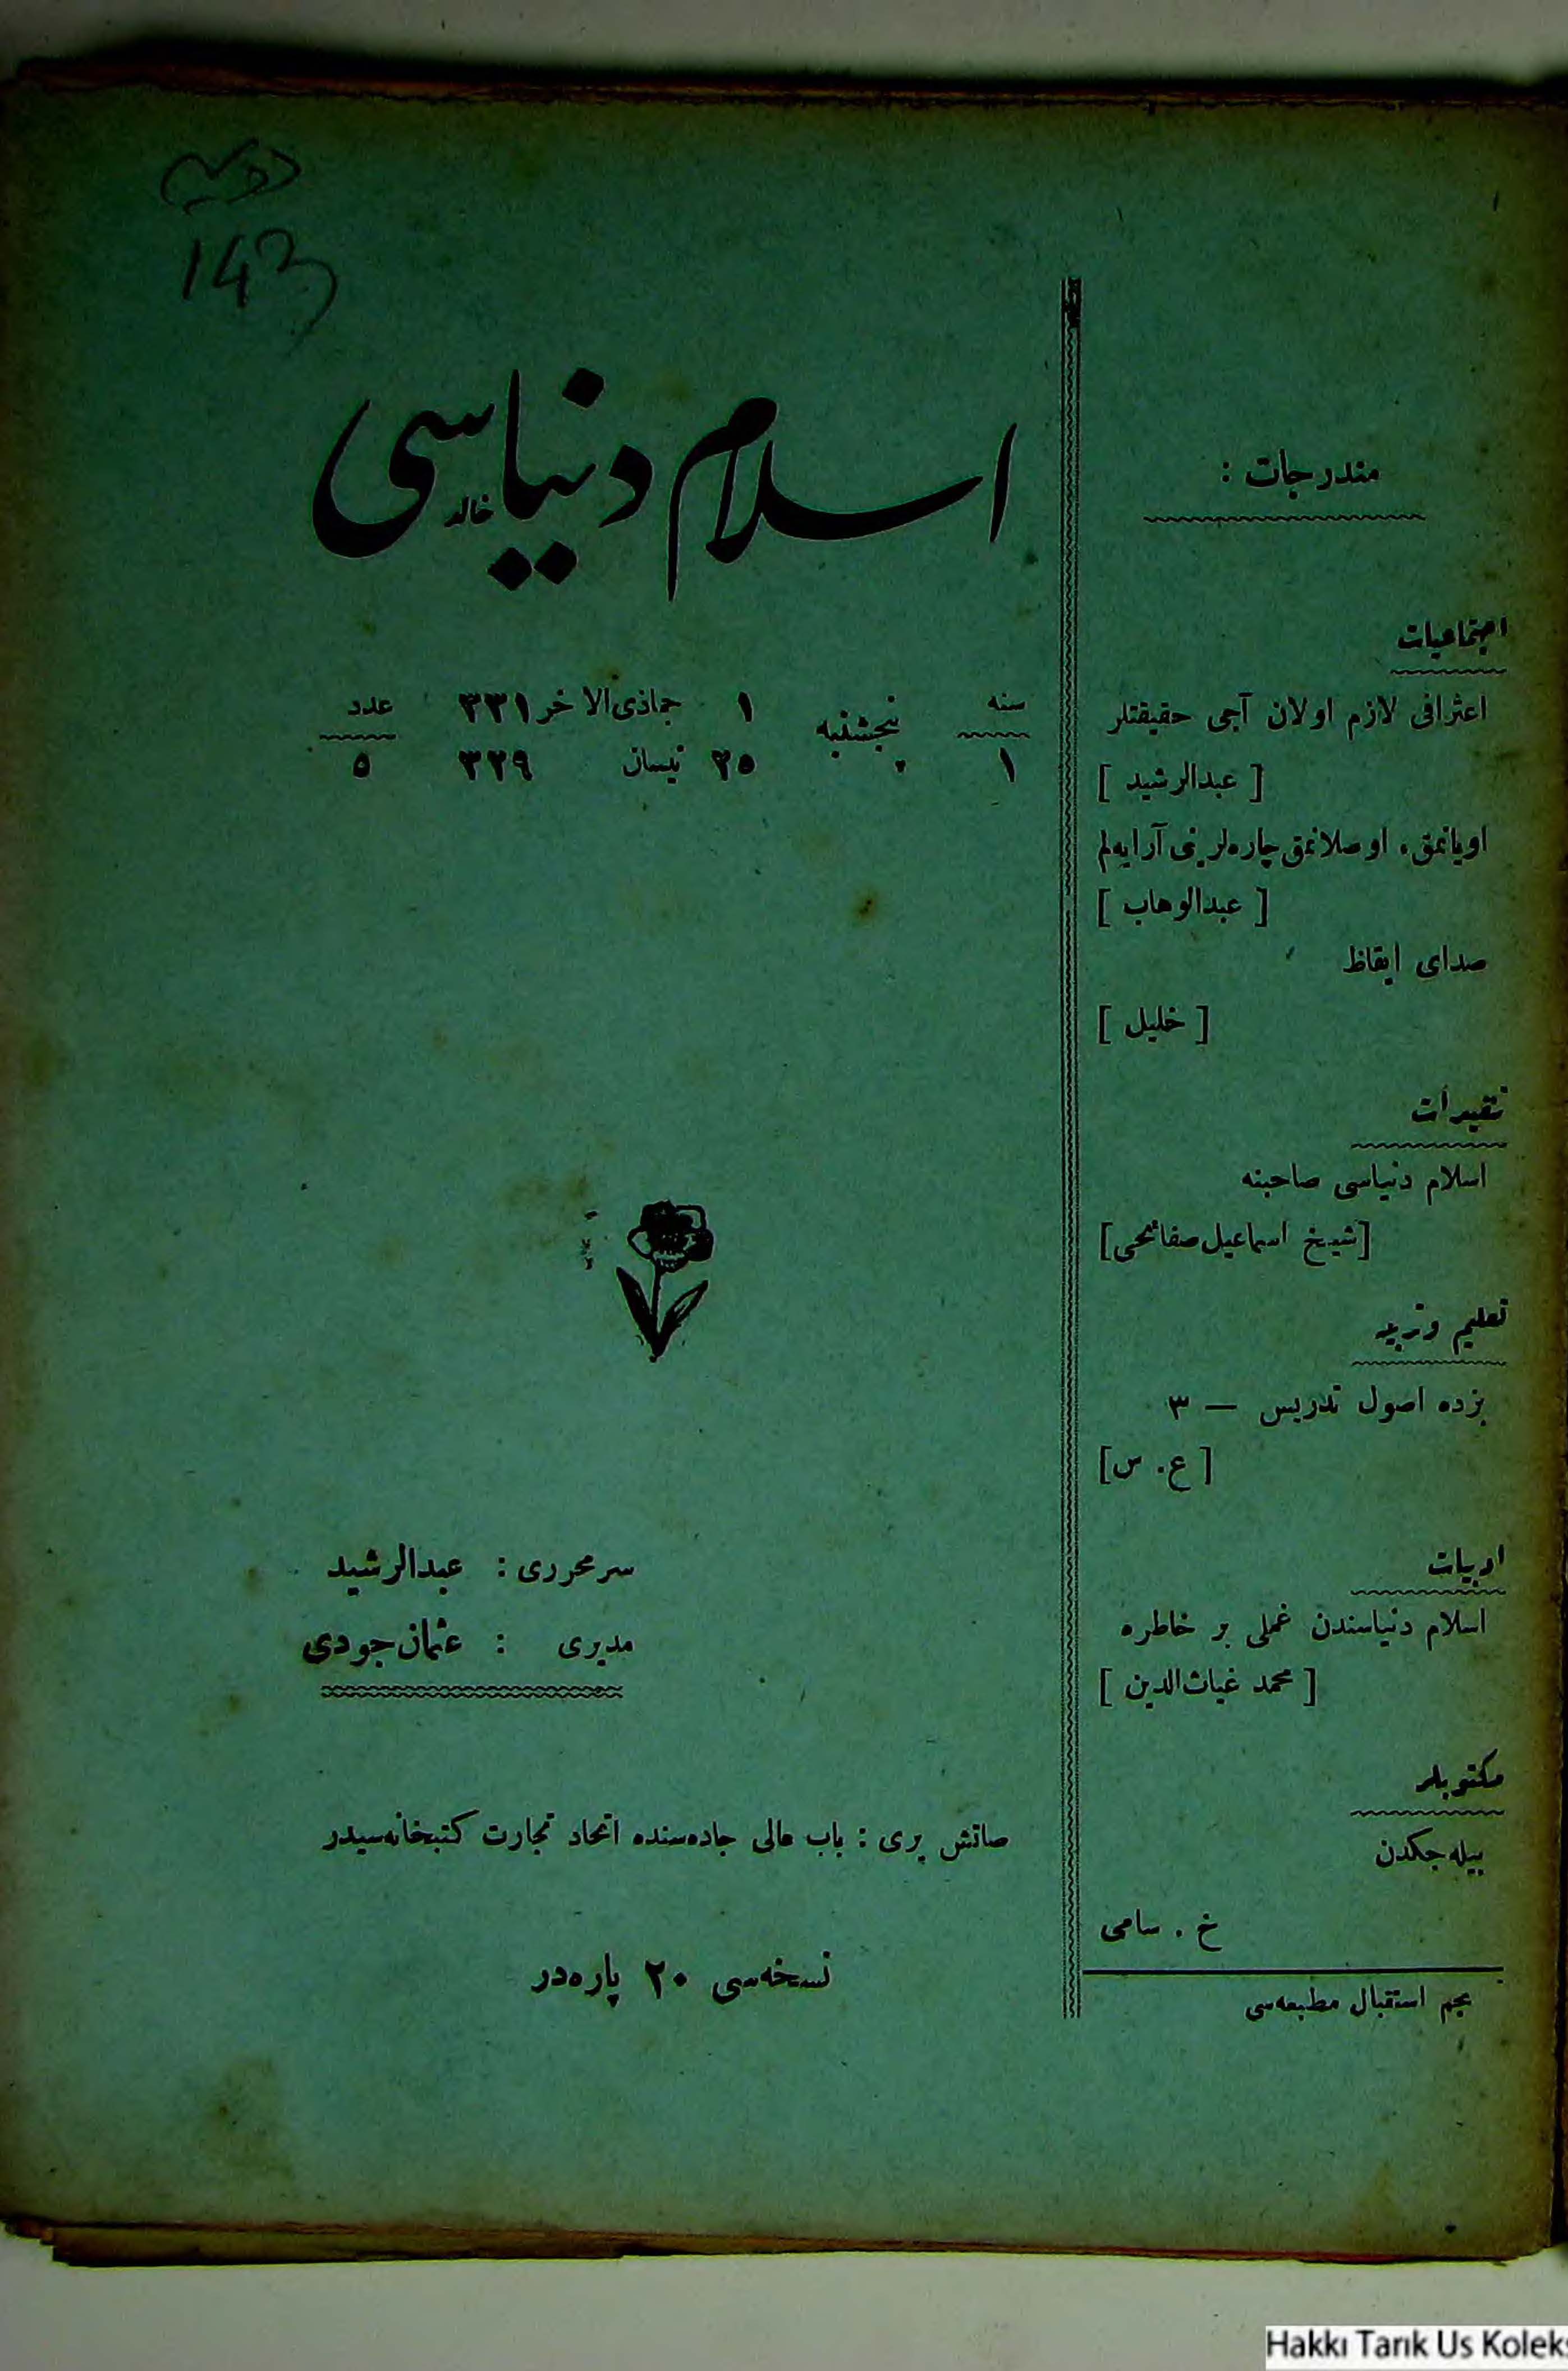 143
اسلام دنیاسی
خالد
سنه
۱
پنجشنبه
۱ جماذی‌الاخر ۳۳۱
۲۵ نیسان ۳۲۹
عدد
۵
سرمحرری : عبدالرشید
مدیری : عثمان جودی
صاتش یری : باب عالی جاده‌سنده اتحاد تجارت كتبخانه‌سیدر
نسخه‌سی ۲۰ پاره‌در
مندرجات :
اجتماعیات
اعترافی لازم اولان آجی حقیقتلر
[ عبدالرشید ]
اویانمق، اوصلانمق چاره‌لرینی آرایه‌لم
[ عبدالوهاب ]
صدای ایقاظ
[ خلیل ]
تنقیدات
اسلام دنیاسی صاحبنه
[شیخ اسماعیل صفائحی]
تعلیم و تربیه
بزده اصول تدریس — ۳
[ ع. س]
ادبیات
اسلام دنیاسندن غملی بر خاطره
[ محمد غیاث‌الدین ]
مكتوبلر
بیله‌جكدن
خ . سامی
نجم استقبال مطبعه‌سی
Hakkı Tarık Us Koleks